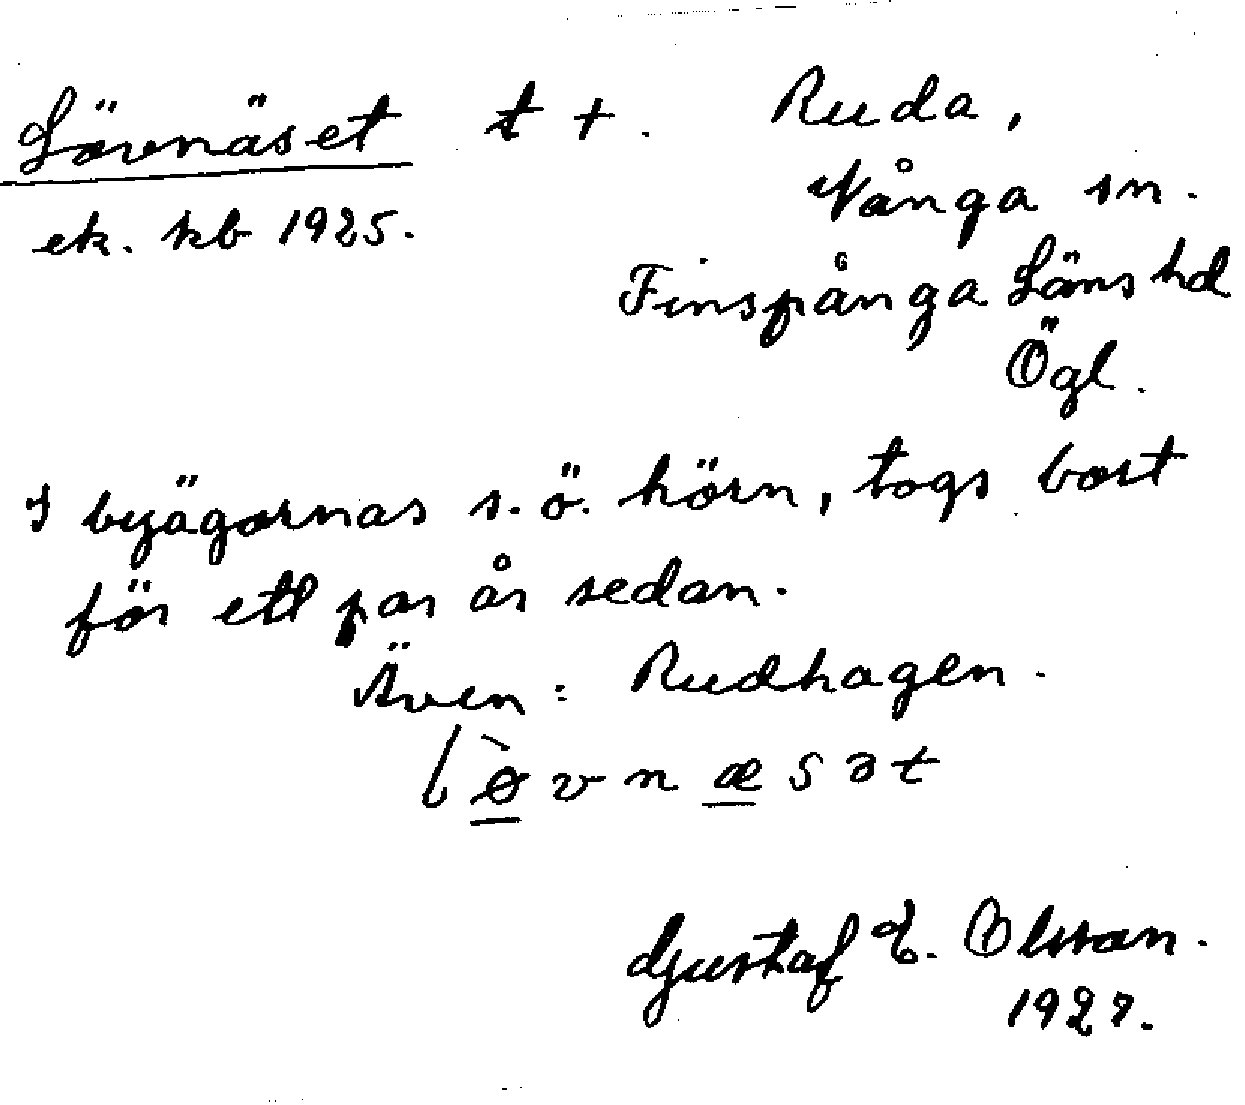 Lövnäset t +. Ruda,
Vånga sn.
ek. kb 1925.
Finspånga Läns hd
Ögl.
I byägornas s.ö. hörn, togs bort
för ett par år sedan.
Även: Rudhagen.
lø̀vnæsət
Gustaf E. Olsson.
1927.